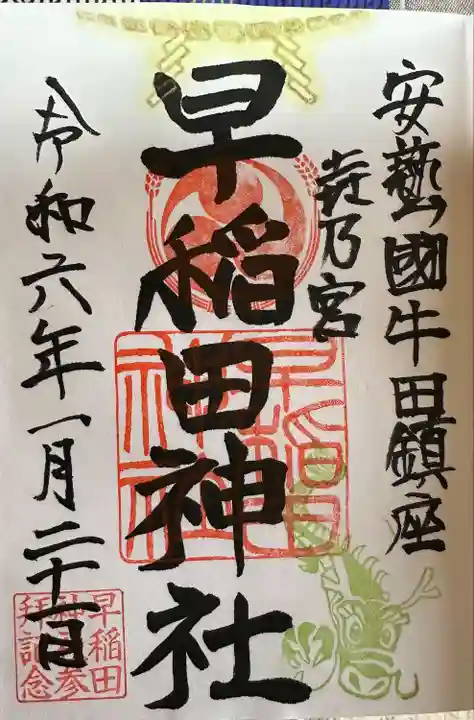 安藝國牛田鎮座
乃宮
早稲田神社
早稲田
神社
令和六年一月二十一日
早稲田
神社参
拝記念